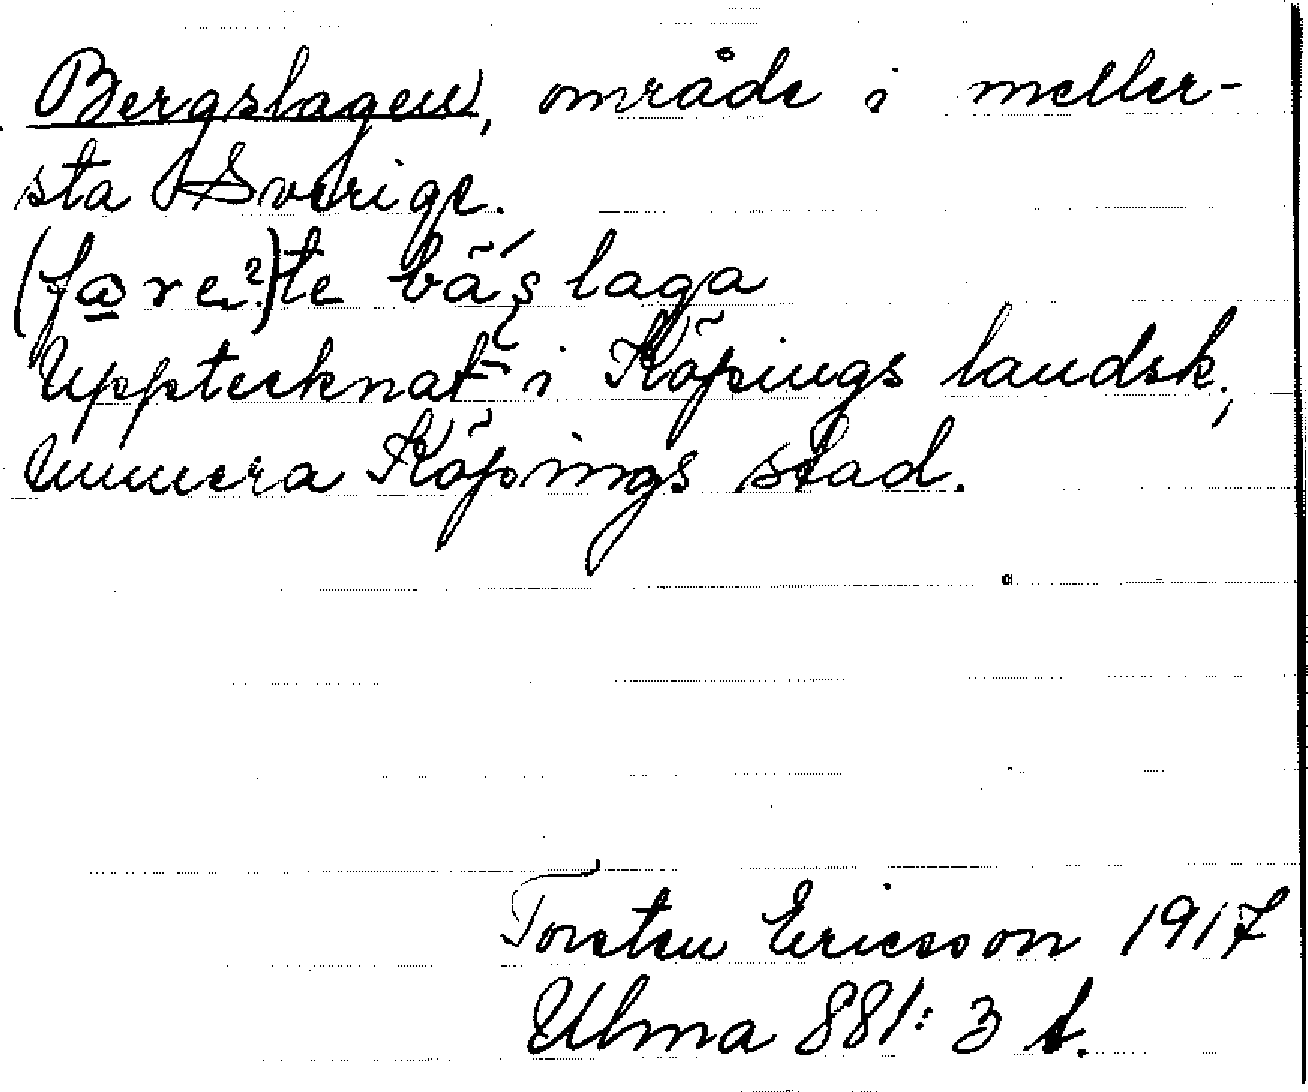 Bergslagen, område i meller-
sta Sverige.
te bä́s laga
Upptecknat i Köpings landsk,
numera Köpings stad.
Torsten Ericsson 1917
Ulma 881: 3 t.